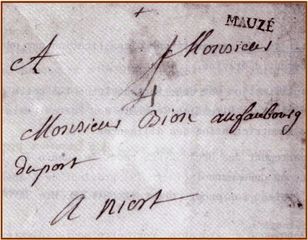 MAUZÉ
A Monsieur
4
Monsieur Bion aufaubourg
duport
A niort